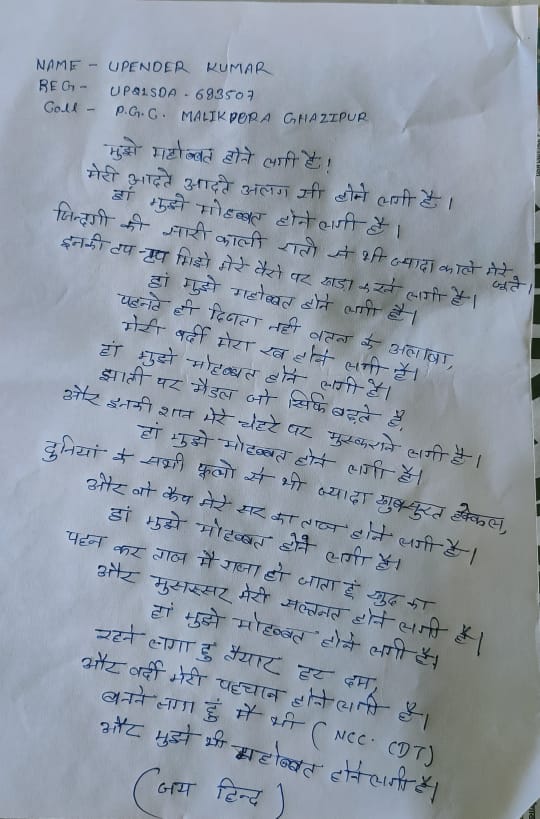 NAME - UPENDER KUMAR
REG - UP21SDA - 683507
Coll - P.G.C. MALIKPORA GHAZIPUR
मुझे महोब्बत होने लगी है!
मेरी आदते आदते अलग सी होने लगी है।
हां मुझे मोहब्बत होने लगी है।
जिन्दगी की सारी काली रातो से भी ज्यादा काले मेरे जूते।
इनकी टप-टप मिझे मेरे पैरो पर खडा करने लगी है।
हां मुझे महोब्बत होने लगी है।
पहनते ही दिखता नही वतन के अलावा,
मेरी वर्दी मेरा रब होने लगी है।
हां मुझे मोहब्बत होने लगी है।
छाती पर मैडल जो सिर्फ बढ़ते है,
और इनकी शान मेरे चेहरे पर मुस्कराने लगी है।
हां मुझे मोहब्बत होने लगी है।
दुनियां के सभी फूलो से भी ज्यादा खुबसुरत हैक्कल,
और वो कैप मेरे सर का ताज होने लगी है।
हां मुझे मोहब्बत होने लगी है।
पहन कर ताज मै राजा हो जाता हूं खुद का
और मुसस्सर मेरी सल्तनत होने लगी है।
हां मुझे मोहब्बत होने लगी है।
रहने लगा हु तैयार हर दम,
और वर्दी मेरी पहचान होने लगी है।
बनने लगा हूं मै भी (NCC. CDT)
और मुझे भी महोब्बत होने लगी है।
(जय हिन्द)